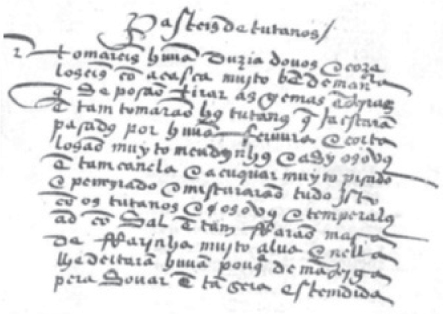 Pasteis de tutanos /
tomareis huũa duzia douos e coza
loseis cõ a casca muyto bẽ de manra
q̃ se posão tirar as gemas
E tam tomarão hũ tutanos q̃ ja estarã
pasados por huũa fervura e corta
losaõ muyto meudynhos e asy os ovos
E tam canela e acuquar muyto pisado
e peneyrado e misturarão tudo Jsto
cõ os tutanos e os ovos e temperalo
ad cõ sal E tam ffarão masa
de ffarinha muyto alva e nella
lhe deitarã huũa pouqua de mãteiga
pera sovar E tã sera estemdida